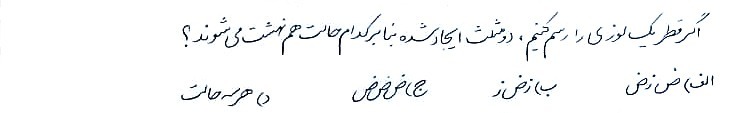 اگر قطر یک لوزی را رسم کنیم، دو مثلث ایجاد شده بنا بر کدام حالت هم نهشت می شوند؟
الف) ض ز ض ب) ز ض ز ج) ض ض ض د) هر سه حالت